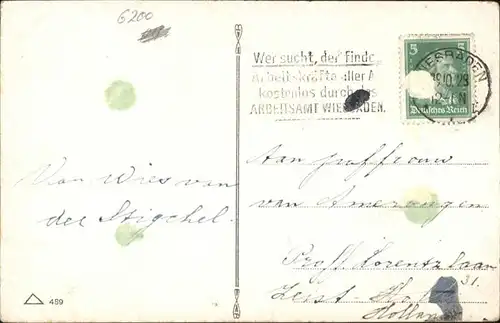 6200
Wer sucht, der findet
Arbeitskräfte aller A
kostenlos durch das
ARBEITSAMT WIESBADEN.
5 5
WIESBADEN
10.28
Deutsches Reich
Van Wies van
der Stigchel.
Aan juffrouw
van Amerongen
Proff Lorentz laan
31.
Zeist - Ho
Holland
489